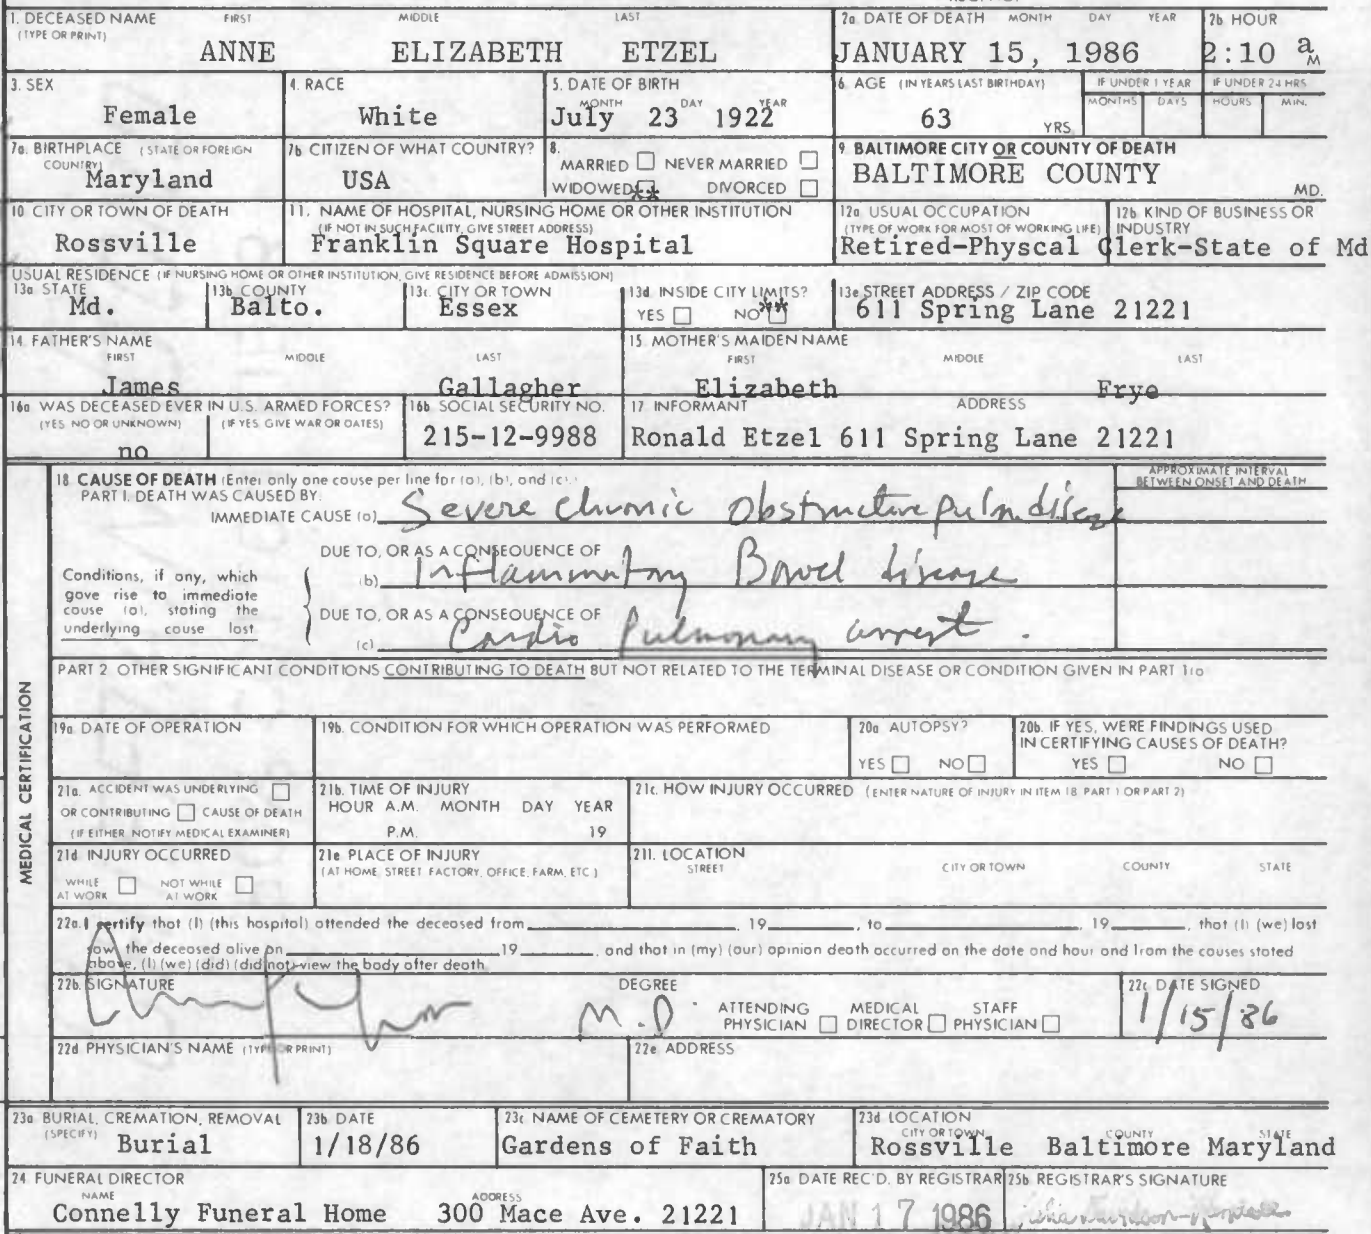 1. DECEASED NAME FIRST MIDDLE LAST
(TYPE OR PRINT)
ANNE ELIZABETH ETZEL
2a DATE OF DEATH MONTH DAY YEAR
JANUARY 15, 1986
2b HOUR
2:10 a M
3. SEX
Female
4. RACE
White
5. DATE OF BIRTH
MONTH DAY YEAR
July 23 1922
6. AGE (IN YEARS LAST BIRTHDAY)
63 YRS.
IF UNDER 1 YEAR
MONTHS DAYS
IF UNDER 24 HRS
HOURS MIN.
7a. BIRTHPLACE (STATE OR FOREIGN
COUNTRY)
Maryland
7b CITIZEN OF WHAT COUNTRY?
USA
8.
MARRIED NEVER MARRIED
WIDOWED ** DIVORCED
9. BALTIMORE CITY OR COUNTY OF DEATH
BALTIMORE COUNTY MD.
10 CITY OR TOWN OF DEATH
Rossville
11. NAME OF HOSPITAL, NURSING HOME OR OTHER INSTITUTION
(IF NOT IN SUCH FACILITY, GIVE STREET ADDRESS)
Franklin Square Hospital
12a USUAL OCCUPATION
(TYPE OF WORK FOR MOST OF WORKING LIFE)
12b KIND OF BUSINESS OR
INDUSTRY
Retired-Physcal Clerk-State of Md
USUAL RESIDENCE (IF NURSING HOME OR OTHER INSTITUTION, GIVE RESIDENCE BEFORE ADMISSION)
13a STATE
Md.
13b COUNTY
Balto.
13c CITY OR TOWN
Essex
13d INSIDE CITY LIMITS?
YES NO **
13e STREET ADDRESS / ZIP CODE
611 Spring Lane 21221
14. FATHER'S NAME
FIRST MIDDLE LAST
James Gallagher
15. MOTHER'S MAIDEN NAME
FIRST MIDDLE LAST
Elizabeth Frye
16a WAS DECEASED EVER IN U.S. ARMED FORCES?
(YES, NO OR UNKNOWN) (IF YES, GIVE WAR OR DATES)
no
16b SOCIAL SECURITY NO.
215-12-9988
17 INFORMANT ADDRESS
Ronald Etzel 611 Spring Lane 21221
MEDICAL CERTIFICATION
18 CAUSE OF DEATH (Enter only one cause per line for (a), (b), and (c).)
PART I. DEATH WAS CAUSED BY:
IMMEDIATE CAUSE (a) Severe chronic obstructive pulm. disease
APPROXIMATE INTERVAL
BETWEEN ONSET AND DEATH
DUE TO, OR AS A CONSEQUENCE OF
(b) Inflammatory Bowel disease
Conditions, if any, which
gave rise to immediate
cause (a), stating the
underlying cause last
DUE TO, OR AS A CONSEQUENCE OF
(c) Cardio Pulmonary arrest.
PART 2 OTHER SIGNIFICANT CONDITIONS CONTRIBUTING TO DEATH BUT NOT RELATED TO THE TERMINAL DISEASE OR CONDITION GIVEN IN PART 1(a)
19a. DATE OF OPERATION
19b. CONDITION FOR WHICH OPERATION WAS PERFORMED
20a AUTOPSY?
YES NO
20b. IF YES, WERE FINDINGS USED
IN CERTIFYING CAUSES OF DEATH?
YES NO
21a. ACCIDENT WAS UNDERLYING
OR CONTRIBUTING CAUSE OF DEATH
(IF EITHER NOTIFY MEDICAL EXAMINER)
21b. TIME OF INJURY
HOUR A.M. MONTH DAY YEAR
P.M. 19
21c. HOW INJURY OCCURRED (ENTER NATURE OF INJURY IN ITEM 18 PART 1 OR PART 2)
21d INJURY OCCURRED
WHILE AT WORK NOT WHILE AT WORK
21e PLACE OF INJURY
(AT HOME, STREET, FACTORY, OFFICE, FARM, ETC.)
21f. LOCATION
STREET CITY OR TOWN COUNTY STATE
22a. I certify that (I) (this hospital) attended the deceased from 19 , to 19 , that (I) (we) last
saw the deceased alive on 19 , and that in (my) (our) opinion death occurred on the date and hour and from the causes stated
above, (I) (we) (did) (did not) view the body after death.
22b. SIGNATURE
DEGREE
M.D.
ATTENDING PHYSICIAN MEDICAL DIRECTOR STAFF PHYSICIAN
22c DATE SIGNED
1/15/86
22d PHYSICIAN'S NAME (TYPE OR PRINT)
22e ADDRESS
23a BURIAL, CREMATION, REMOVAL
(SPECIFY)
Burial
23b DATE
1/18/86
23c NAME OF CEMETERY OR CREMATORY
Gardens of Faith
23d LOCATION
CITY OR TOWN COUNTY STATE
Rossville Baltimore Maryland
24 FUNERAL DIRECTOR
NAME ADDRESS
Connelly Funeral Home 300 Mace Ave. 21221
25a DATE REC'D. BY REGISTRAR
JAN 17 1986
25b REGISTRAR'S SIGNATURE